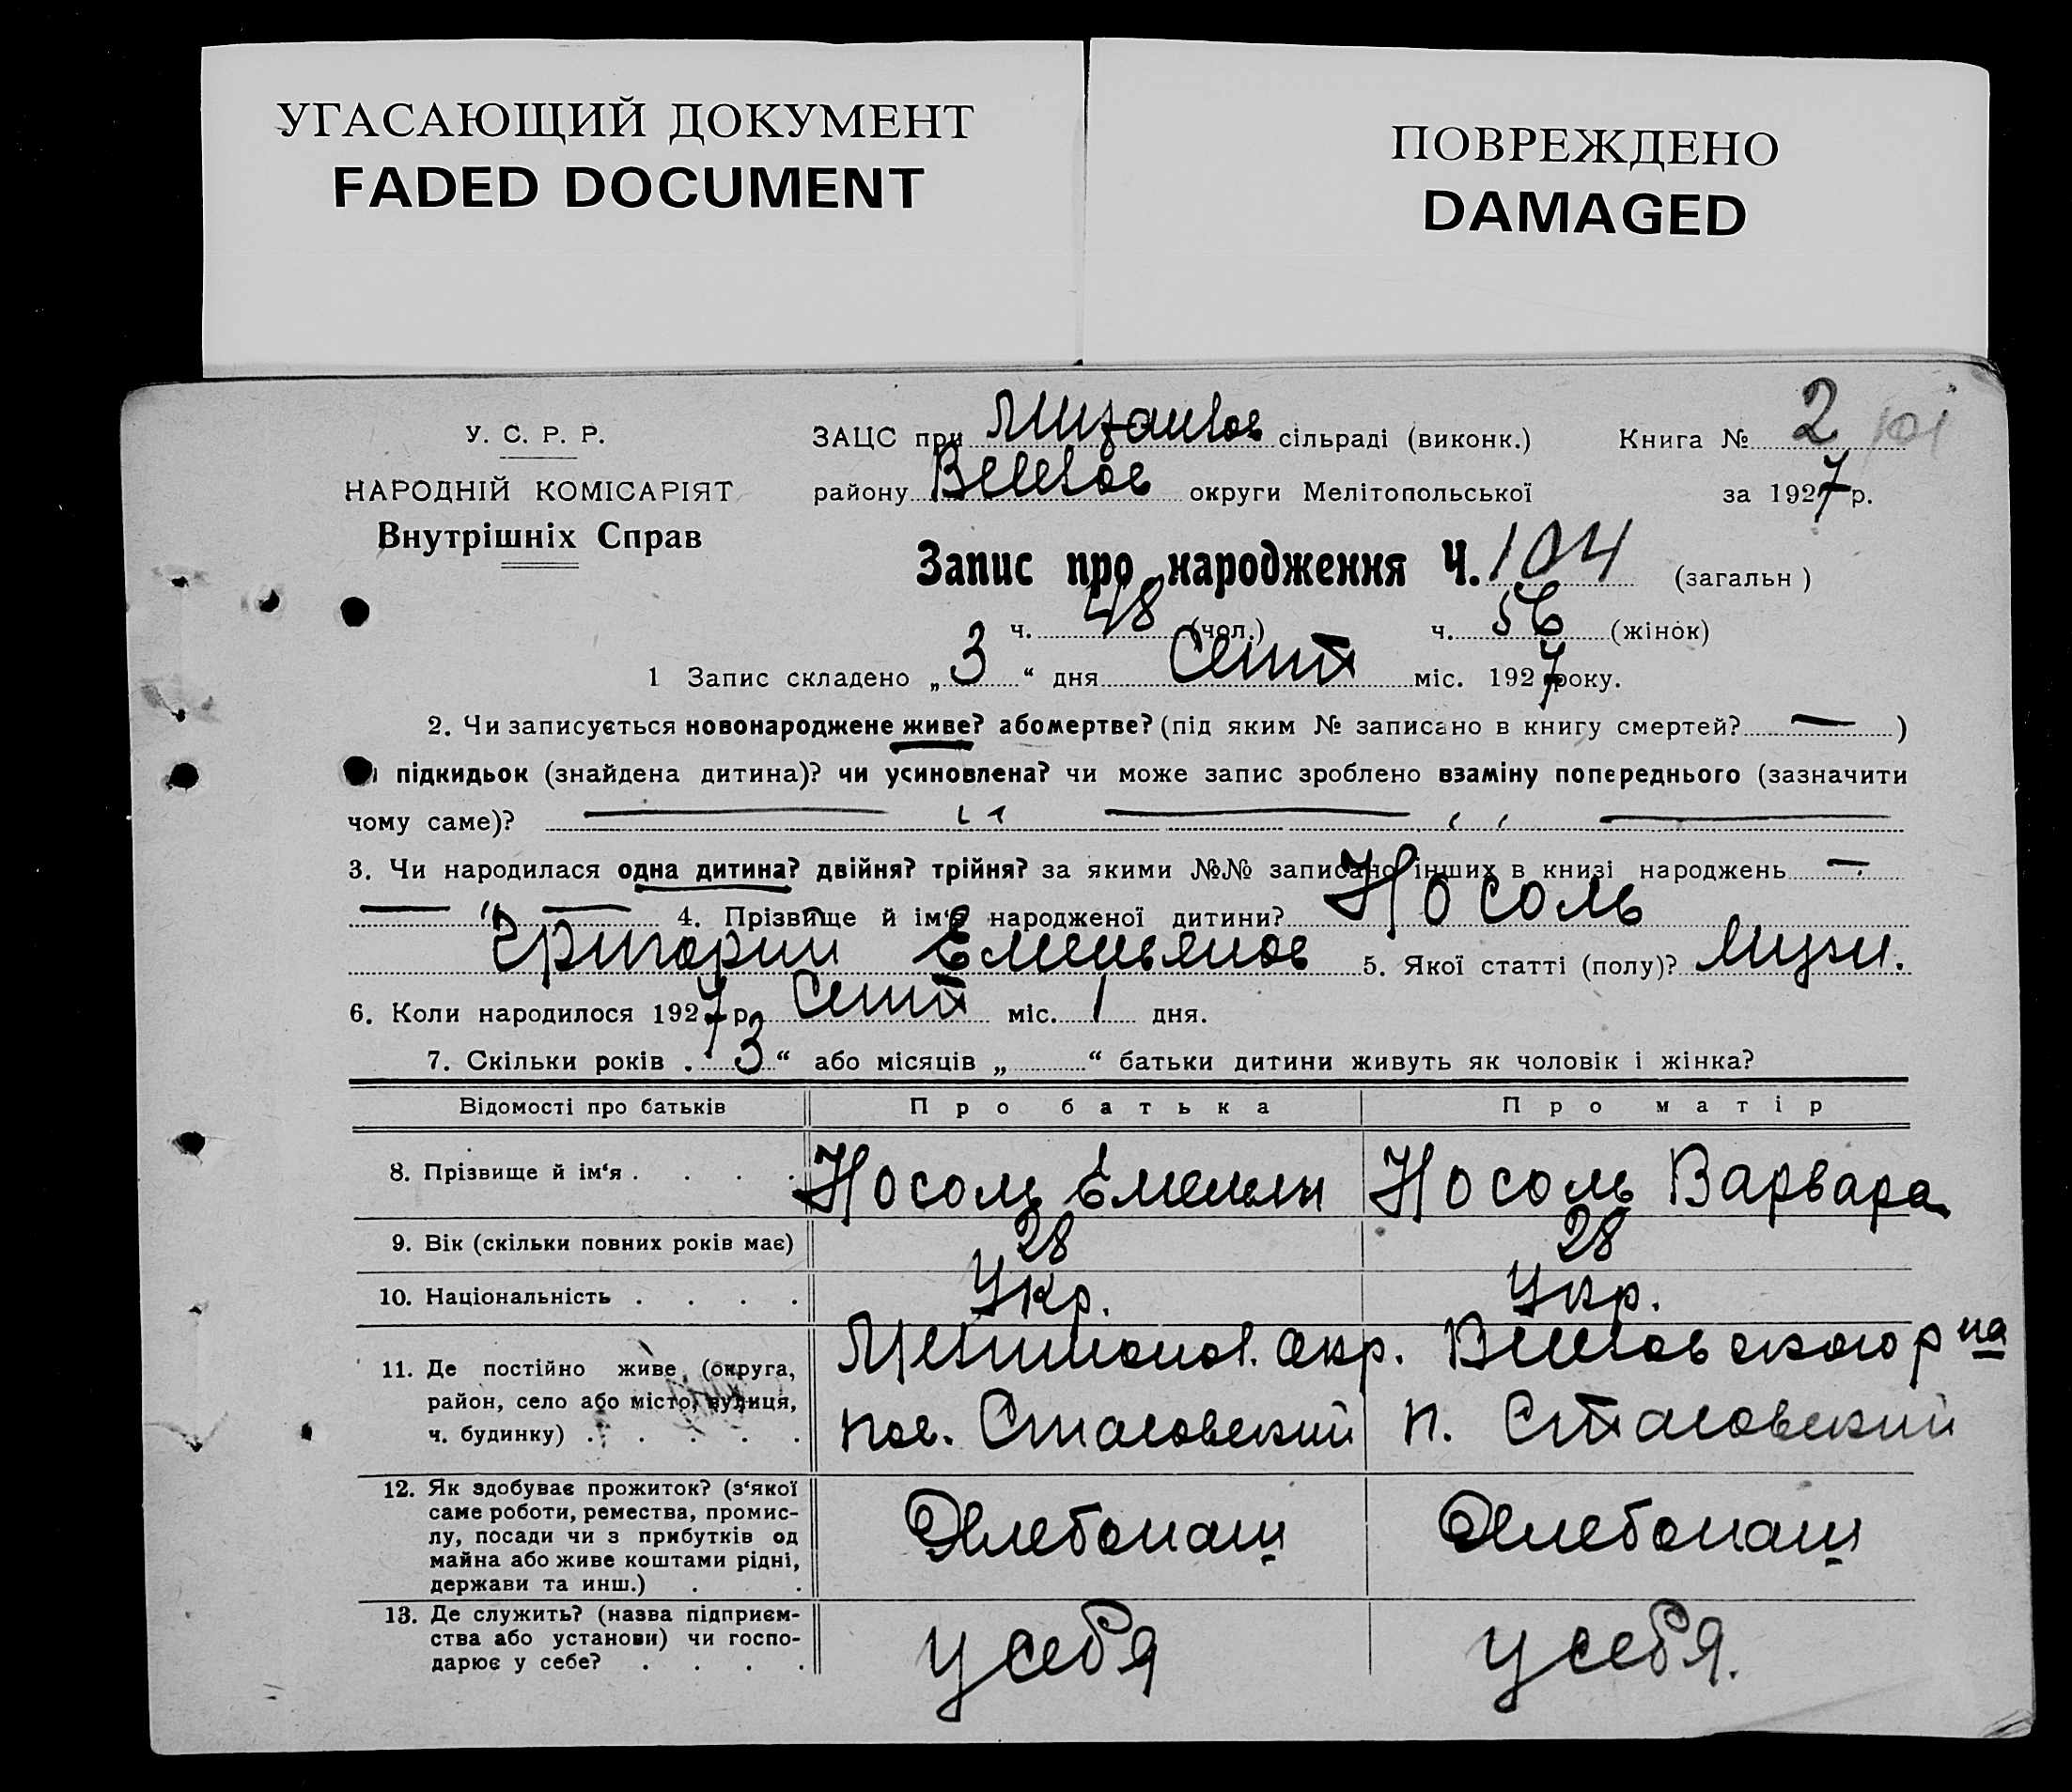 УГАСАЮЩИЙ ДОКУМЕНТ
FADED DOCUMENT
ПОВРЕЖДЕНО
DAMAGED
У. С. Р. Р.
НАРОДНІЙ КОМІСАРІЯТ
Внутрішніх Справ
ЗАЦС при сільраді (виконк.) Книга № 2
району Весёлов округи Мелітопольської за 1927 р.
Запис про народження Ч. 104 (загальн)
ч. 48 (чол.) ч. 56 (жінок)
1 Запис складено „3“ дня Сент міс. 1927 року.
2. Чи записується новонароджене живе? або мертве? (під яким № записано в книгу смертей? — )
підкидьок (знайдена дитина)? чи усиновлена? чи може запис зроблено взаміну попереднього (зазначити
чому саме)? — „ — „ —
3. Чи народилася одна дитина? двійня? трійня? за якими №№ записано інших в книзі народжень —
— „ — 4. Прізвище й ім‘я народженої дитини? Носоль
Григорий Емельянов 5. Якої статті (полу)? Мужч.
6. Коли народилося 1927 р. Сент міс. 1 дня.
7. Скільки років „3“ або місяців „ “ батьки дитини живуть як чоловік і жінка?
Відомості про батьків Про батька Про матір
8. Прізвище й ім‘я . . . . Носоль Емельян Носоль Варвара
9. Вік (скільки повних років має) 28 28
10. Національність . . . . Укр. Укр.
11. Де постійно живе (округа,
район, село або місто, вулиця,
ч. будинку) . . . . .
Мелитопол. окр. Веселовского р на
пос. Стасовский п. Стасовский
12. Як здобуває прожиток? (з‘якої
саме роботи, ремества, промис-
лу, посади чи з прибутків од
майна або живе коштами рідні,
держави та инш.) . .
Хлебопаш Хлебопаш
13. Де служить? (назва підприєм-
ства або установи) чи госпо-
дарює у себе? . . . .
у себя у себя.